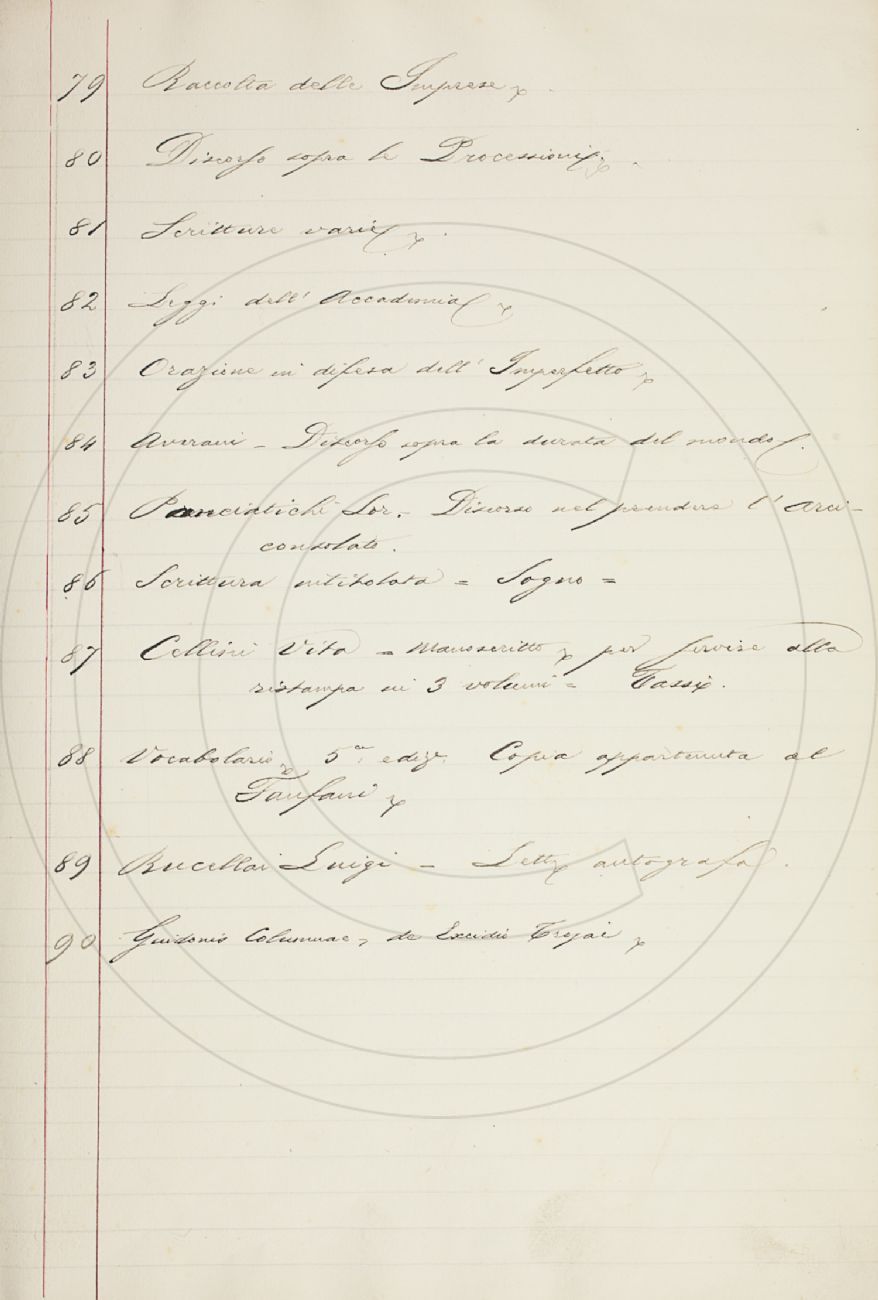 79 Raccolta delle Imprese
80 Discorso sopra le Processioni
81 Scritture varie
82 Leggi dell' Accademia
83 Orazione in difesa dell' Imperfetto
84 Averani - Discorso sopra la durata del mondo.
85 Panciatichi Lor. - Discorso nel prendere l' Arci-
consolato.
86 Scrittura intitolata = Sogno =
87 Cellini Vita = Manoscritto per servire alla
ristampa in 3 volumi = Tassi.
88 Vocabolario 5a. ediz. Copia appartenuta al
Fanfani
89 Rucellai Luigi - Lett autografa.
90 Guidonis Columnae, de Excidio Trojae